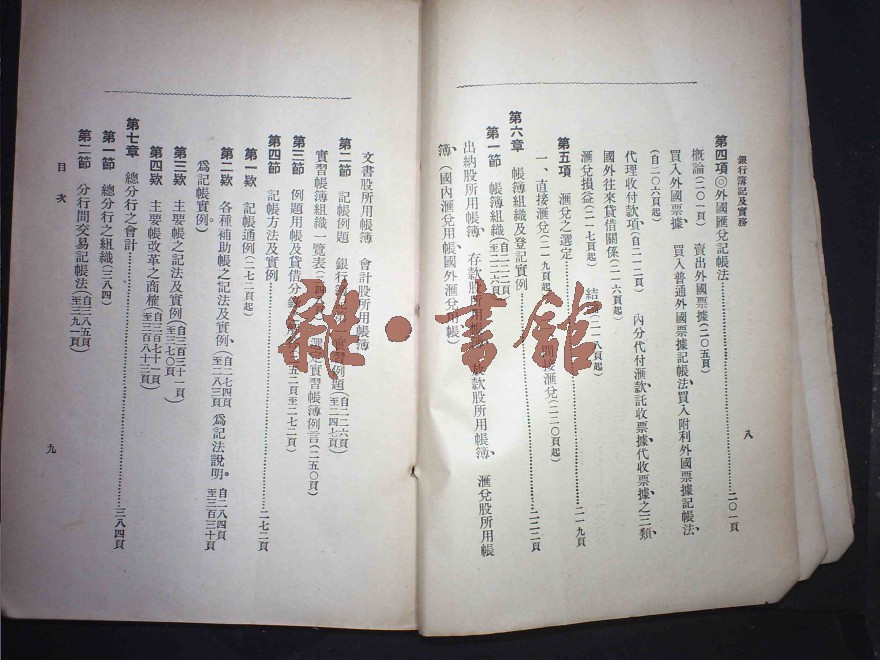 銀行簿記及實務
八
第四項◎外國匯兌記帳法……二〇一頁
概論(二〇一頁) 賣出外國票據(二〇五頁)
買入外國票據、買入普通外國票據記帳法、買入附利外國票據記帳法、
(自二〇六頁起)
代理收付款項(自二一二頁) 內分代付匯款、託收票據、代收票據、之三類、
國外往來貸借關係(二一六頁起)
匯兌損益(二一七頁起) 結論(二一八頁起)
第五項 匯兌之選定……二一九頁
一、直接匯兌(二一九頁起) 間接匯兌(二二〇頁起)
第六章 帳簿組織及登記實例……二二二頁
第一節 帳簿組織(自二二二頁至二二六頁)
出納股所用帳簿、 存款股所用帳簿、 放款股所用帳簿、 匯兌股所用帳
簿、(國內匯兌用帳、國外匯兌用帳)
文書股所用帳簿 會計股所用帳簿
第二節 記帳例題 銀行 實習例題(自二二六頁至二四七頁)
實習帳簿組織一覽表 選定實習帳簿例言(二五〇頁)
第三節 例題用帳及貸借分 二五二頁至二七二頁)
第四節 記帳方法及實例……二七二頁
第一欵 記帳通例(二七二頁起)
第二欵 各種補助帳之記法及實例、(自二七四頁至二八三頁 爲記法說明。自二八四頁至三百三十頁
爲記帳實例)。
第三欵 主要帳之記法及實例(自三百三十一頁至三七〇頁)
第四欵 主要帳改革之商榷(自三百七十一頁至三百八十三頁)
第七章 總分行之會計……三八四頁
第一節 總分行之組織(三八四)
第二節 分行間交易記帳法(自三八五頁至三九一頁)
目次
九
雜·書館